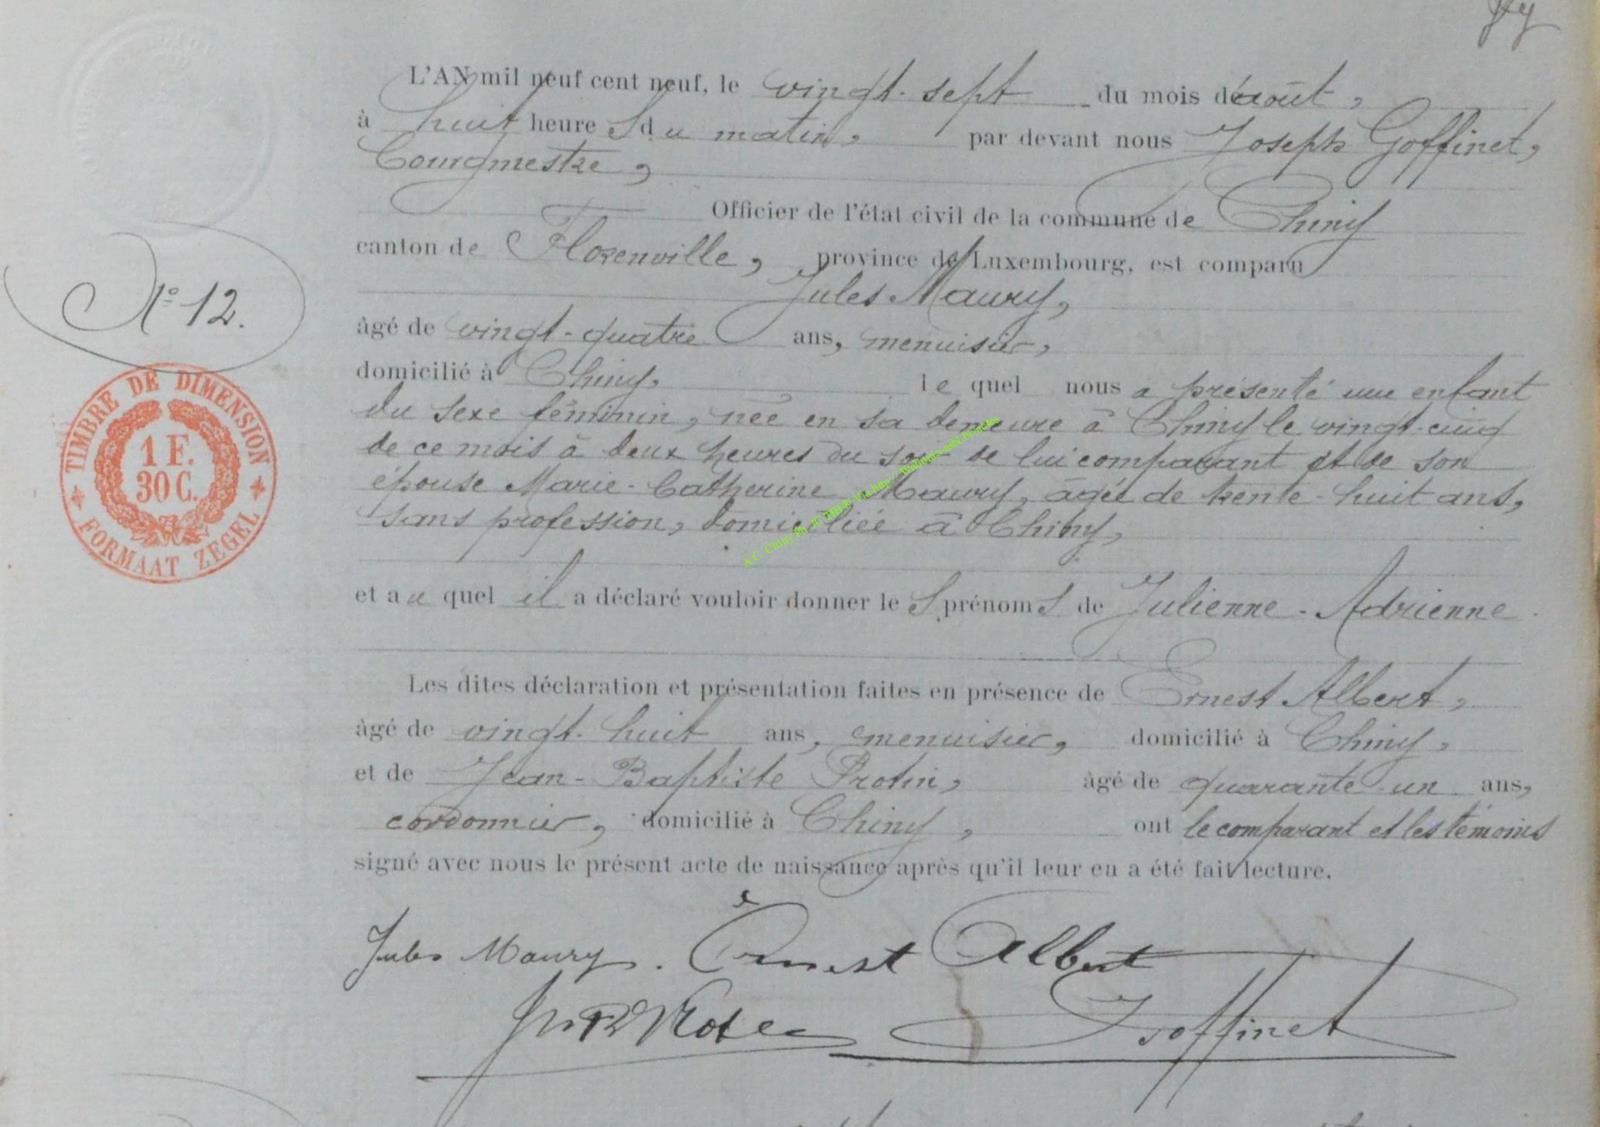 L'AN mil neuf cent neuf, le vingt-sept du mois d'août,
à huit heures du matin, par devant nous Joseph Goffinet,
bourgmestre,
Officier de l'état civil de la commune de Chiny
canton de Florenville, province de Luxembourg, est comparu
Jules Maury,
N° 12.
âgé de vingt-quatre ans, menuisier,
domicilié à Chiny, le quel nous a présenté une enfant
du sexe féminin, née en sa demeure à Chiny le vingt-cinq
de ce mois à deux heures du soir de lui comparant et de son
épouse Marie-Catherine Maury, âgée de trente-huit ans,
sans profession, domiciliée à Chiny,
et au quel il a déclaré vouloir donner les prénoms de Julienne-Adrienne.
Les dites déclaration et présentation faites en présence de Ernest Albert,
âgé de vingt-huit ans, menuisier, domicilié à Chiny,
et de Jean-Baptiste Protin, âgé de quarante-un ans,
cordonnier, domicilié à Chiny, ont le comparant et les témoins
signé avec nous le présent acte de naissance après qu'il leur en a été fait lecture.
Jules Maury. Ernest Albert
JGoffinet
TIMBRE DE DIMENSION
1 F.
30 C.
FORMAAT ZEGEL